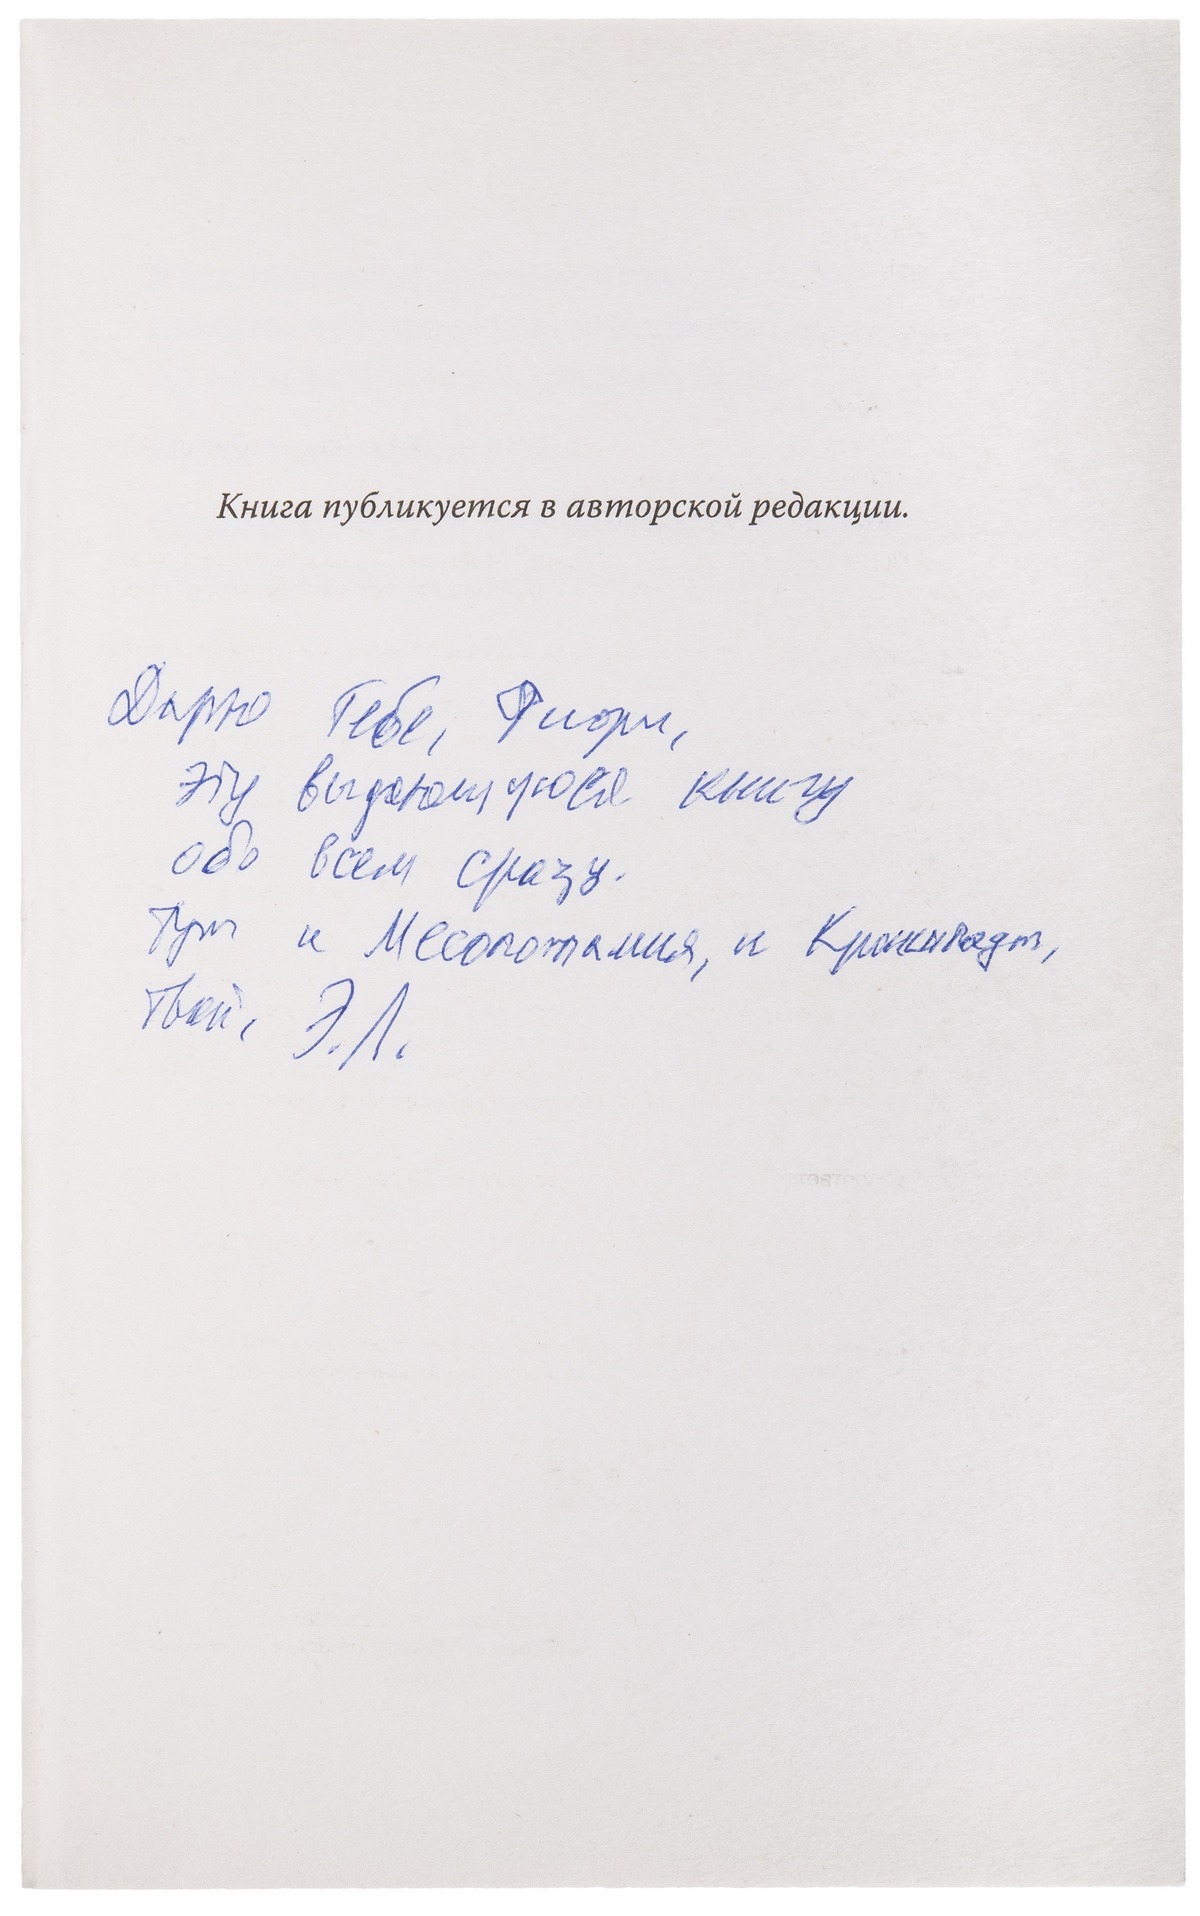 Книга публикуется в авторской редакции.
Дарю Тебе, Фиори,
эту выдающуюся книгу
обо всём сразу.
Тут и Месопотамия, и Кронштадт,
Твой, Э.Л.